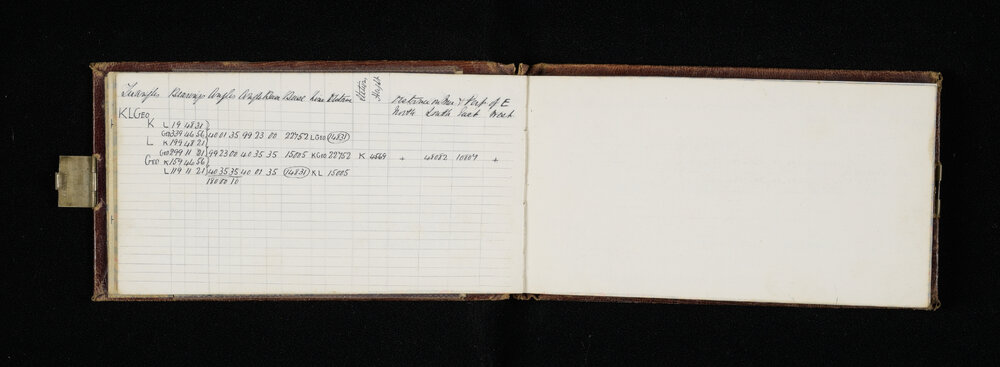 Triangles Bearings Angles Base Line Distance Station Height Distance on Mer & Perp of E
North South East West
KLGEO
K L 19 48 31
GEO 339 46 56 40 01 35 99 23 00 22752 L GEO 14831
L K 199 48 21
GEO 299 11 21 99 23 00 40 35 35 15005 K GEO 22752 K 4569 + 48082 10807 +
GEO K 159 46 56
L 119 11 21 40 35 35 40 01 35 14831 KL 15005
180 00 10